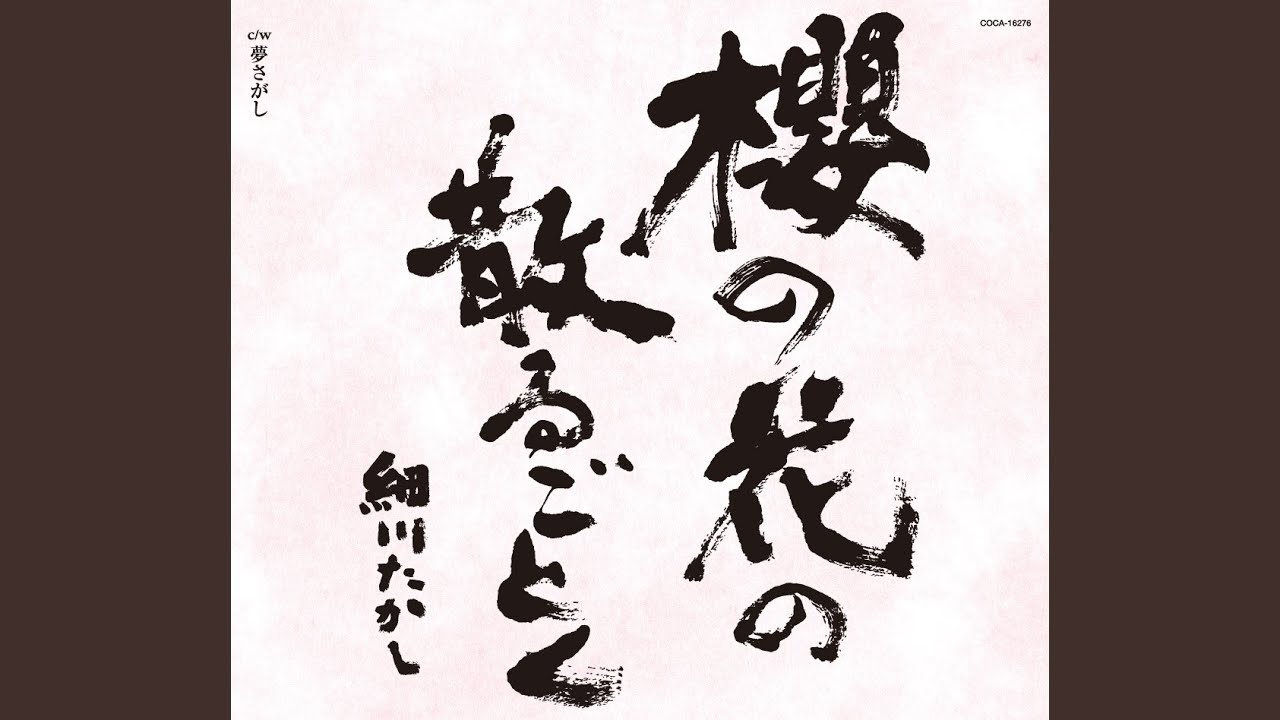 COCA-16276
櫻の花の
散るごとく
細川たかし
c/w
夢さがし